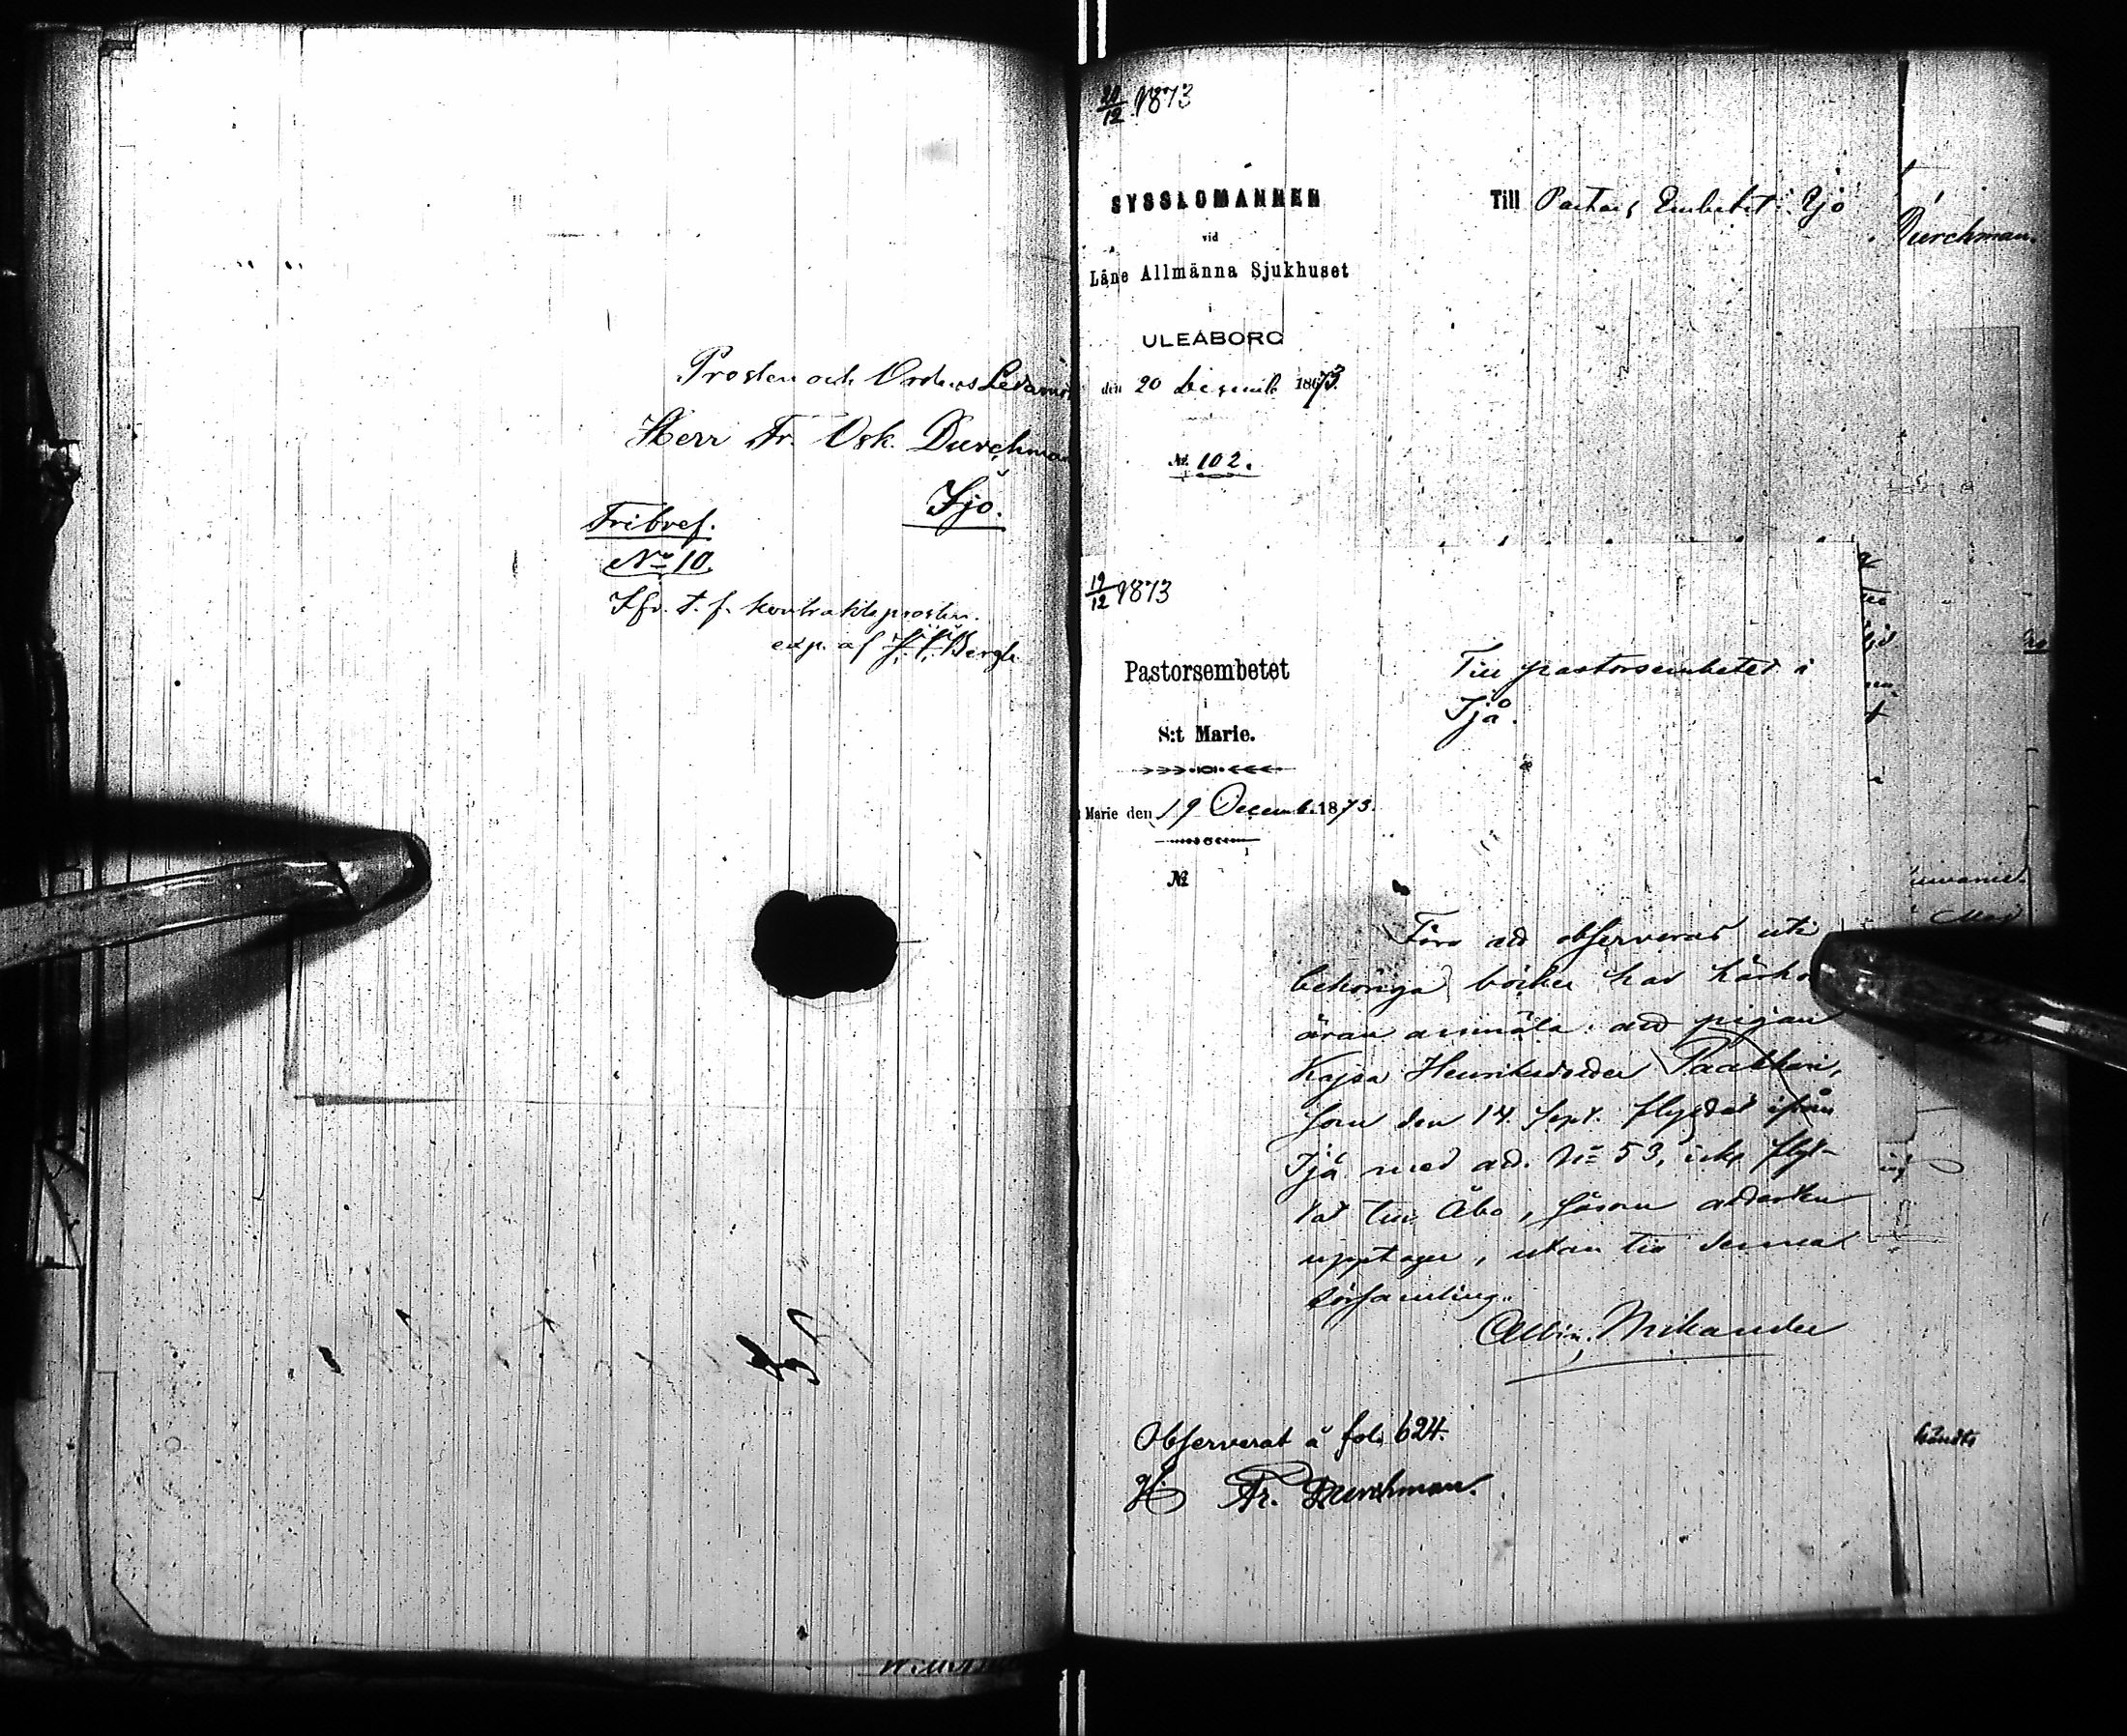 Prosten och Ordens Ledamot
Herr Fr. Osk. Durchman
Ijo.
Fribref.
No 10.
Ifr. t. f. kontraktsprosten.
exp. af
20/12 1873
SYSSLOMANNEN
vid
Läns Allmänna Sjukhuset
i
ULEÅBORG
den 20 Decemb 1873.
№ 102.
Till Pastors Embetet i Ijo
Durchman.
19/12 1873
Pastorsembetet
i
S:t Marie.
Marie den 19 Decemb. 1873.
№
Till pastorsembetet i
Ijå.
Före att observeras uti
behöriga böcker har härho
äran anmäla, att pigan
Kajsa Henriksdotter Paakkari,
som den 14. Sept. flyttat ifrån
Ijå med att. No 53, icke flyt-
tat till Åbo, såsom attesten
upptager, utan till denna
församling.
Albin Mikander
Observerat å fol. 624.
Fr. Durchman.